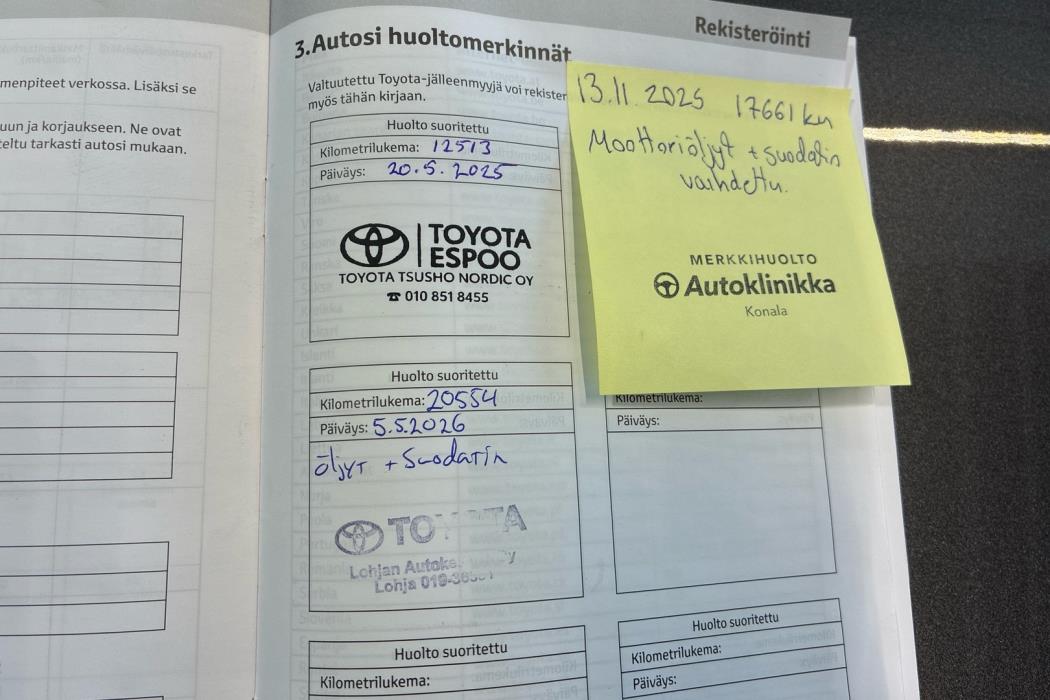 menpiteet verkossa. Lisäksi se
uun ja korjaukseen. Ne ovat
teltu tarkasti autosi mukaan.
Rekisteröinti
3.Autosi huoltomerkinnät
Valtuutettu Toyota-jälleenmyyjä voi rekister
myös tähän kirjaan.
Huolto suoritettu
Kilometrilukema: 12513
Päiväys: 20.5.2025
TOYOTA
ESPOO
TOYOTA TSUSHO NORDIC OY
☎ 010 851 8455
13.11.2025 17661 km
Moottoriöljyt + suodatin
vaihdettu.
MERKKIHUOLTO
Autoklinikka
Konala
Huolto suoritettu
Kilometrilukema: 20554
Päiväys: 5.5.2026
öljyt + Suodatin
TOYOTA
Lohjan
Lohja
Kilometrilukema:
Päiväys:
Huolto suoritettu
Kilometrilukema:
Huolto suoritettu
Kilometrilukema:
Päiväys: